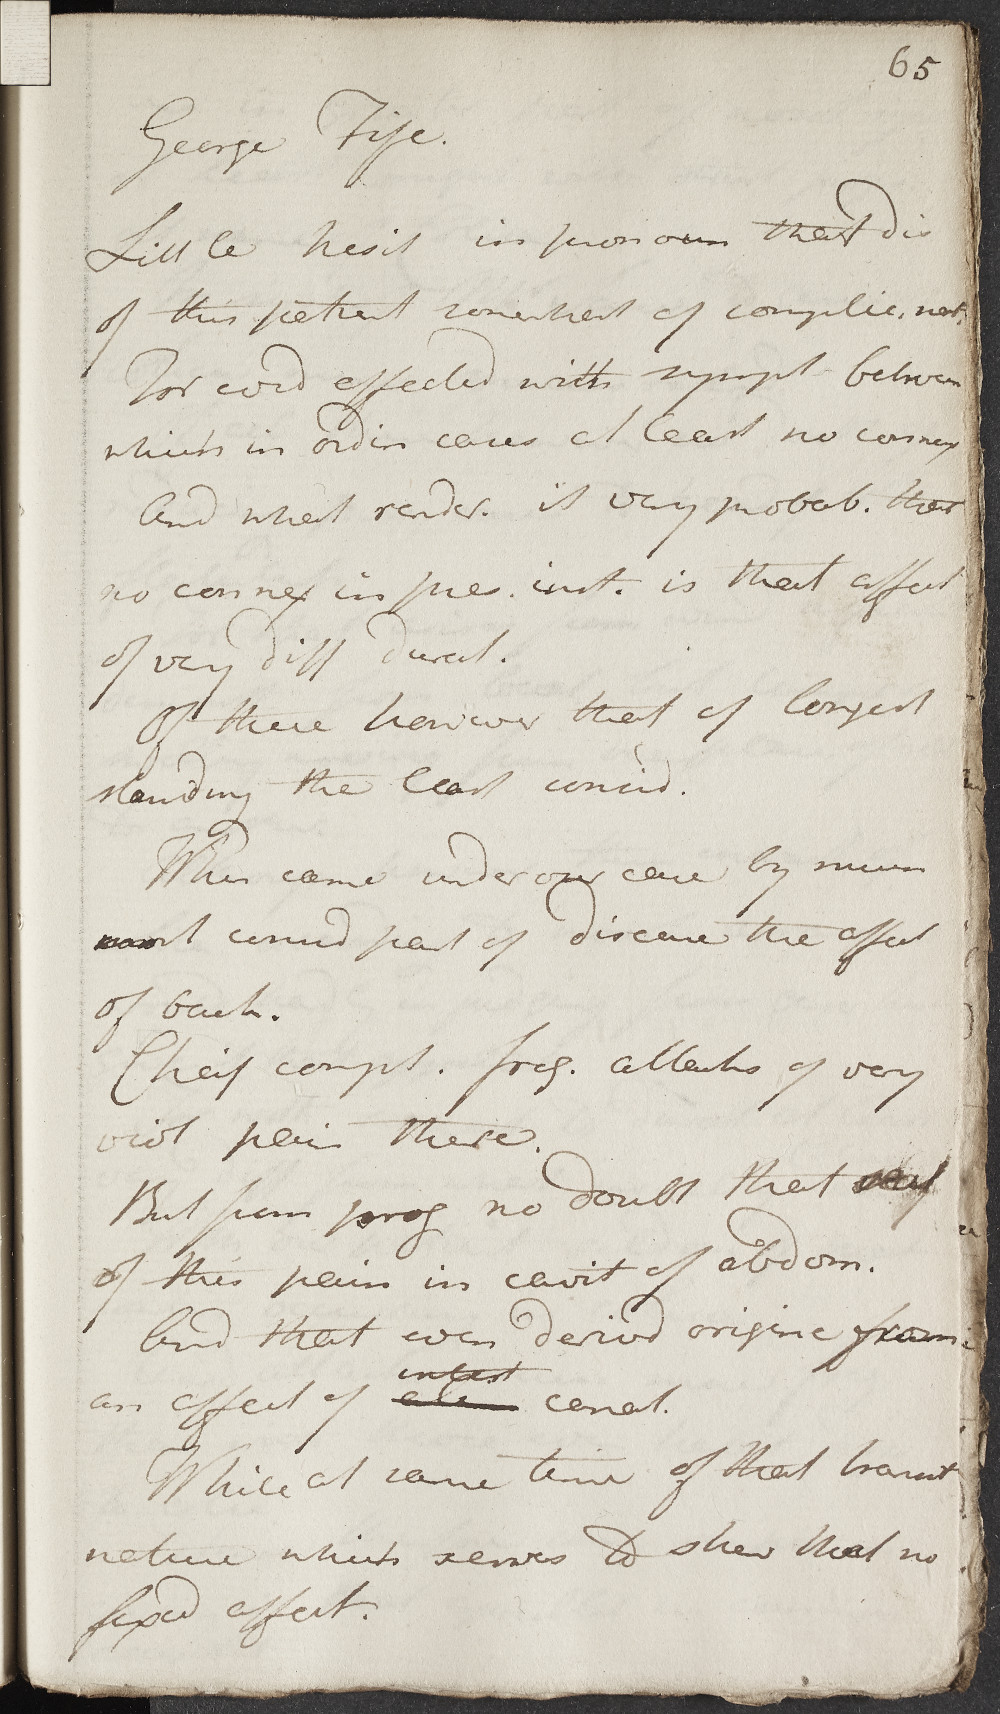 65
George Fife.
Little hesit in pronoun that dis
of this patient somewhat of complic. nat.
For and affected with sympt between
which in ordin cases at least no connex
And what render. it very probab. that
no connex in pres. inst. is that affect
of very diff durat.
Of these however that of longest
standing the least consid.
When came under our care by much
most consid part of disease the affect
of back.
Cheif compt. freq. attacks of very
viol pain there.
But from prog no doubt that seat
of this pain in cavit of abdom.
And that even derivd origine from
an affect of intest canal.
While at same time of that transit
nature which serves to shew that no
fixed affect.